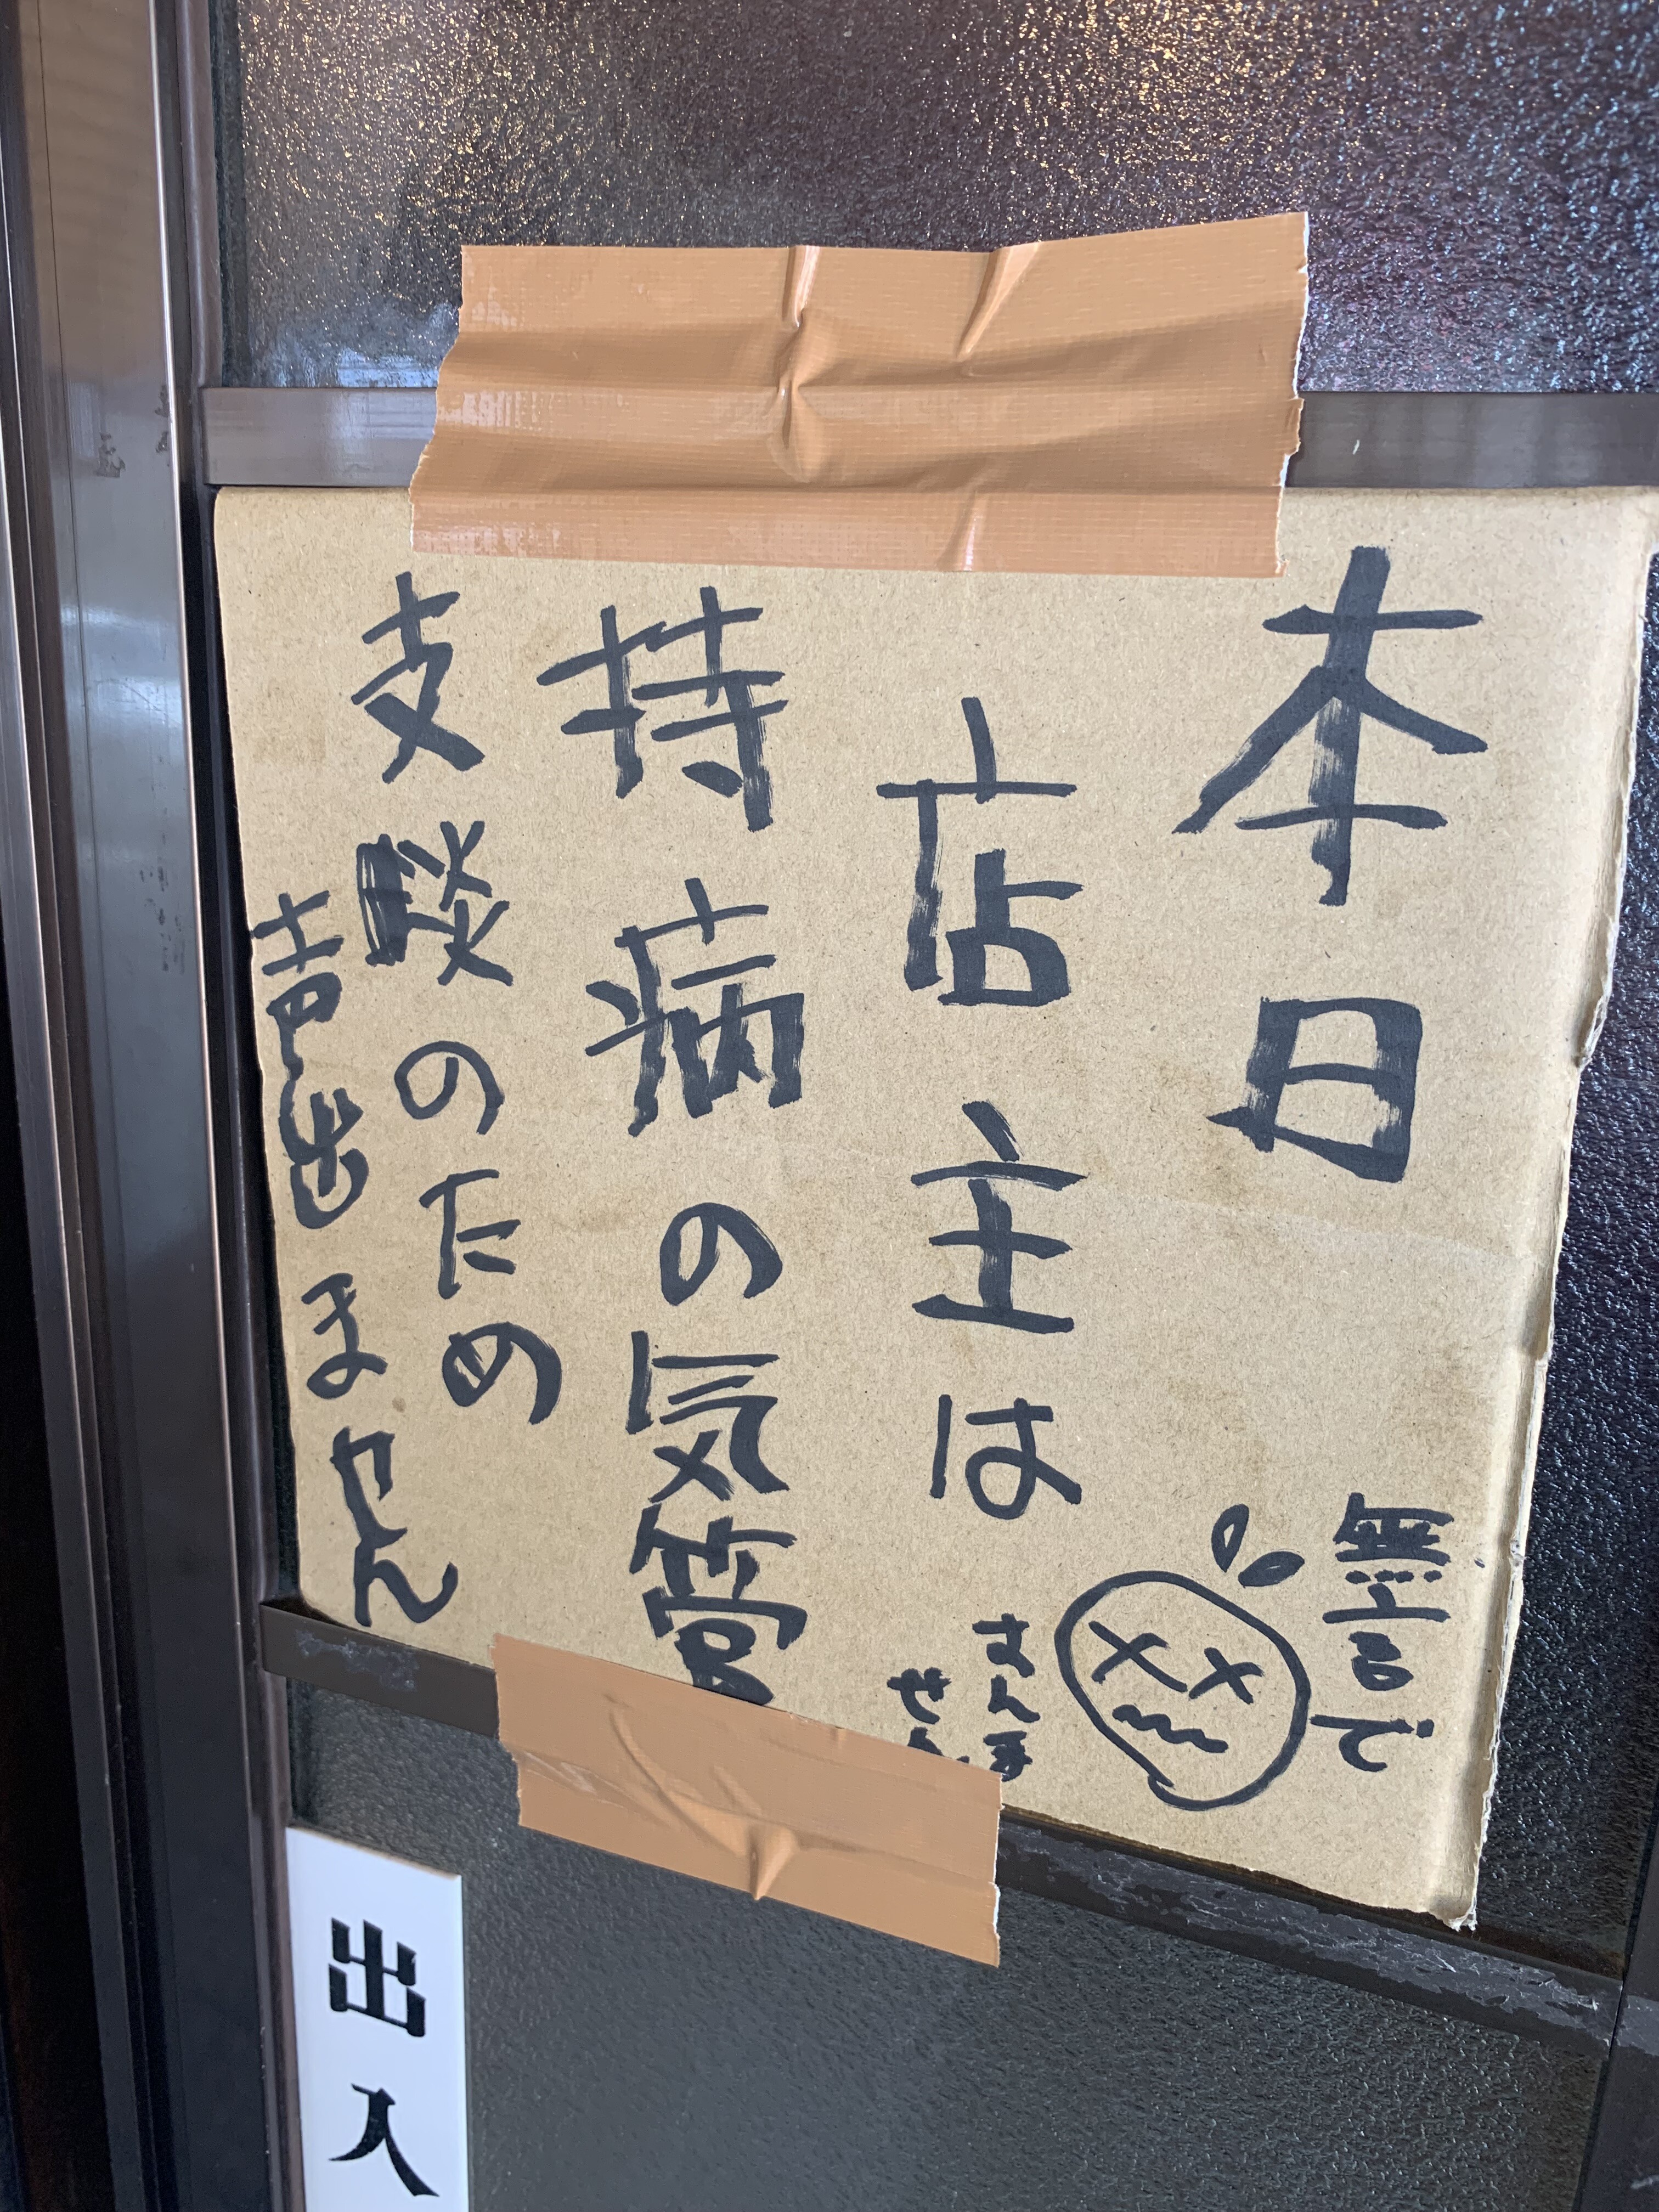 本日
店主は
持病の気管
支炎のため
声出ません
無言で
すんま
せん
出入